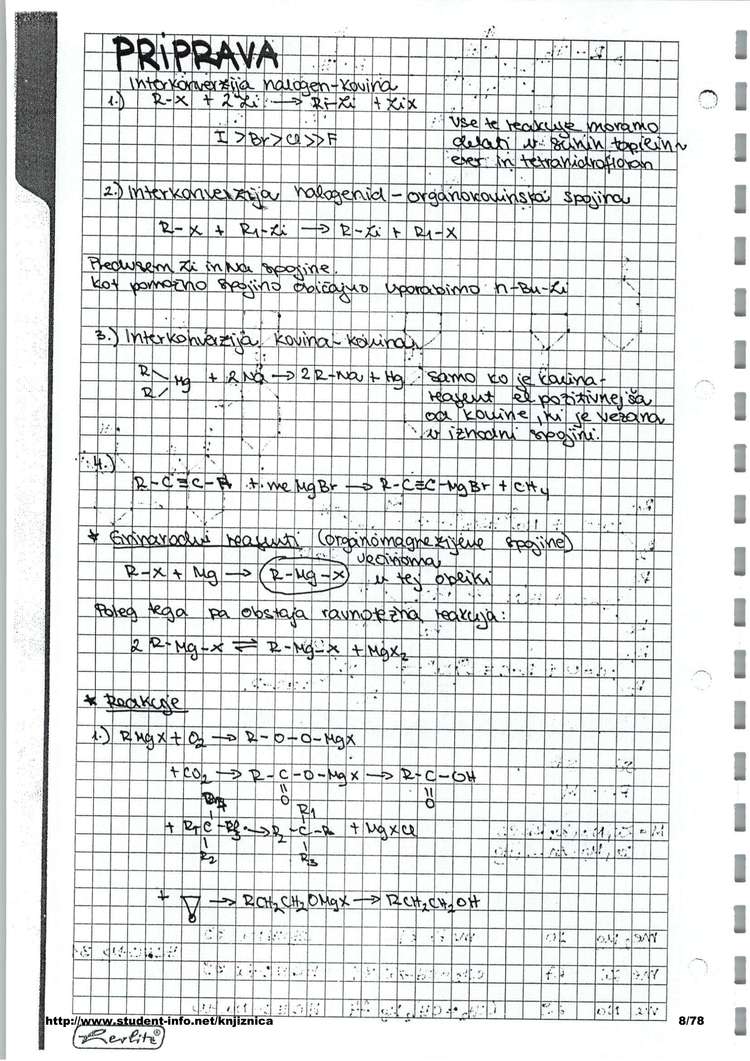 PRIPRAVA
Interkonverzija halogen-kovina
1.) R-X + 2Li → R-Li + LiX
I > Br > Cl >> F
Vse te reakcije moramo
delati v
eter in tetrahidrofuran
2.) Interkonverzija halogenid - organokovinska spojina
R-X + R1-Li → R-Li + R1-X
Predvsem Li in Na spojine.
Kot pomožno spojino običajno uporabimo n-Bu-Li
3.) Interkonverzija kovina-kovina
R
R
Hg + 2Na → 2R-Na + Hg
samo ko je kovina-
reagent el. pozitivnejša
od kovine, ki je vezana
v izhodni spojini.
4.)
R-C≡C-H + meMgBr → R-C≡C-MgBr + CH4
* Grinardovi reagenti (organomagnezijeve spojine)
R-X + Mg → R-Mg-X večinoma
v tej obliki
Poleg tega pa obstaja ravnotežna reakcija:
2 R-Mg-X ⇌ R-Mg-X + MgX2
* Reakcije
1.) RMgX + O2 → R-O-O-MgX
+ CO2 → R-C-O-MgX → R-C-OH
O O
R1
+ C → R2-C-R + MgXCl
R2 R3
+ → RCH2CH2OMgX → RCH2CH2OH
http://www.student-info.net/knjiznica
8/78